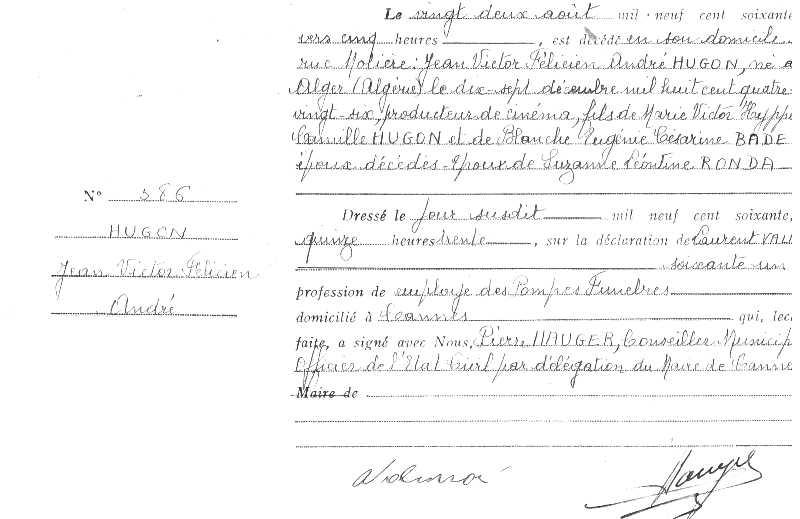 Le vingt deux août mil-neuf cent soixante
vers cinq heures, est décédé en son domicile
rue Molière: Jean Victor Félicien André HUGON, né à
Alger (Algérie) le dix-sept décembre mil huit cent quatre-
vingt-six, producteur de cinéma, fils de Marie Victor Hypp
Camille HUGON et de Blanche Eugénie Césarine BADE
époux décédés - Epoux de Suzanne Léontine RONDA
N° 386
HUGON
Jean Victor Félicien
André
Dressé le jour susdit mil neuf cent soixante,
quinze heures trente, sur la déclaration de Laurent VALL
soixante un
profession de employé des Pompes Funèbres
domicilié à Cannes qui, lec
faite, a signé avec Nous, Pierre HAUGER, Conseiller Municip
Officier de l'Etat Civil par délégation du Maire de Canne
Maire de